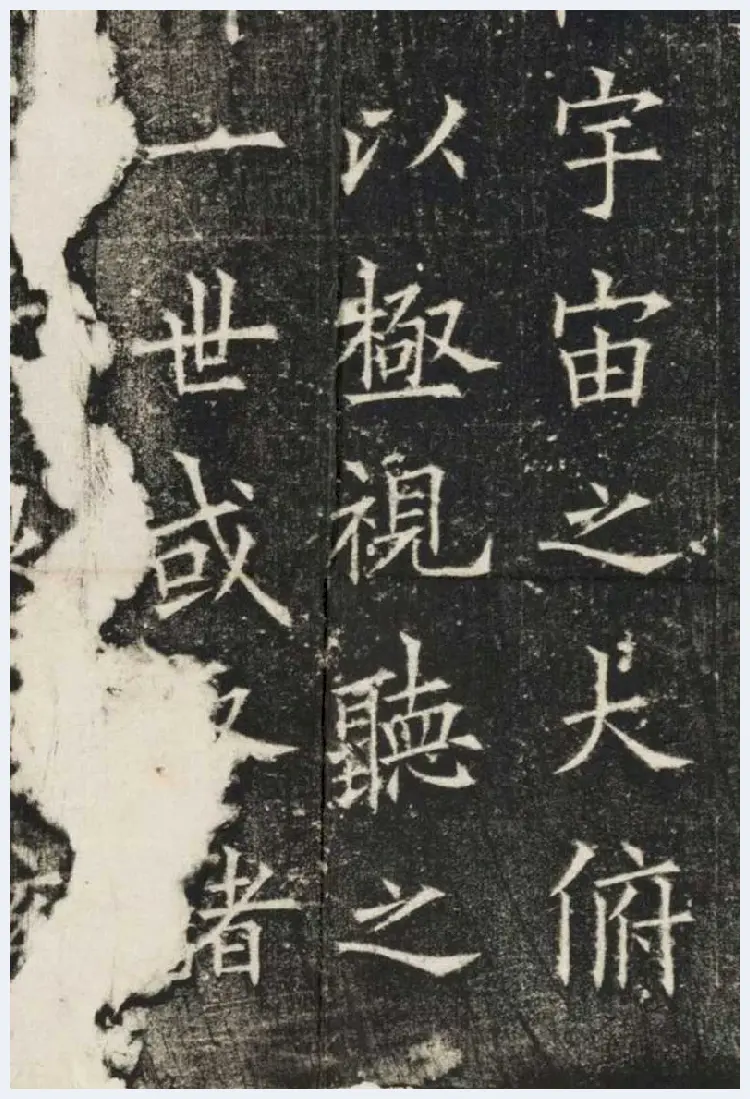 宇宙之大俯
以極視聽之
一世或取諸